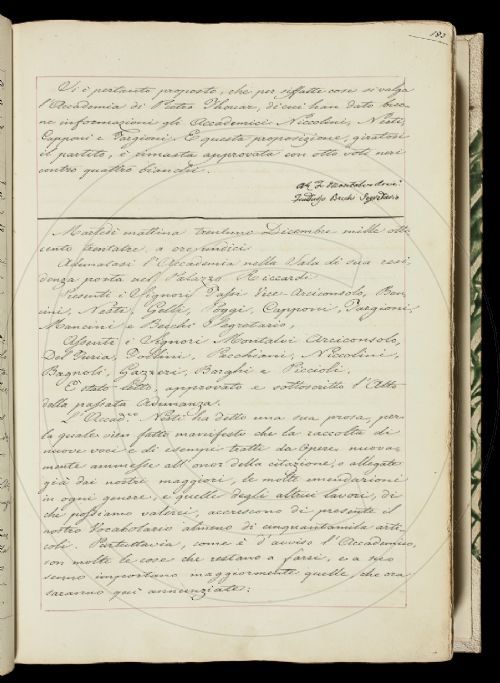 183
Si è pertanto proposto, che per siffatte cose si valga
l'Accademia di Pietro Thouar, di cui han dato buo-
ne informazioni gli Accademici Niccolini, Nesti,
Capponi e Targioni. E questa proposizione, giratosi
il partito, è rimasta approvata con otto voti neri
contro quattro bianchi.
Montalvo Arci.
Fruttuoso Becchi Segretario
Martedì mattina trentuno Dicembre mille otto
cento trentatre, a ore undici
Adunatasi l'Accademia nella Sala di sua resi-
denza posta nel Palazzo Riccardi
Presenti i Signori Passi Vice-Arciconsolo, Ben-
cini, Nesti, Gelli, Poggi, Capponi, Targioni,
Mancini e Becchi Segretario,
Assente i Signori Montalvi Arciconsolo,
Del Furia, Pollini, Pacchiani, Niccolini,
Bagnoli, Gazzeri, Borghi e Piccioli.
È stato letto, approvato e sottoscritto l'Atto
della passata Adunanza.
L'Accad.co Nesti ha detto una sua prosa, per
la quale vien fatto manifesto che la raccolta di
nuove voci e di esempi tratti da Opere nuova-
mente ammesse all'onor della citazione, o allegate
già dai nostri maggiori, le molte emendazioni
in ogni genere, e quelle degli altrui lavori, di
che possiamo valerci, accrescono di presente il
nostro Vocabolario almeno di cinquantamila arti-
coli. Tuttavia, come è d'avviso l'Accademico,
son molte le cose che restano a farsi, e a suo
senno importano maggiormente quelle, che ora
saranno qui annunziate: